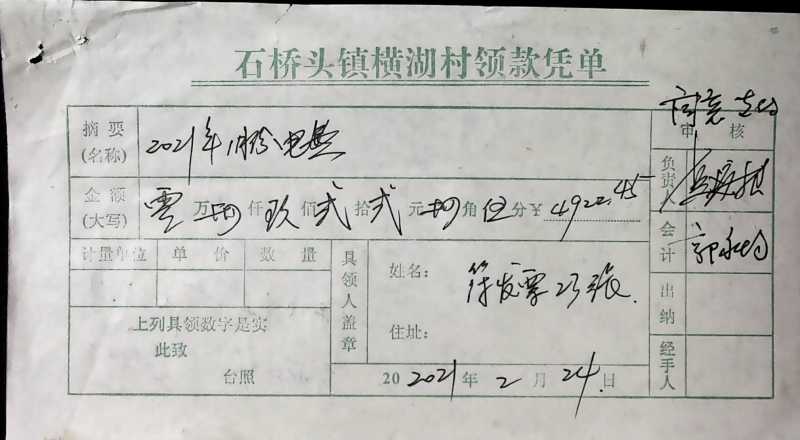 石桥头镇横湖村领款凭单
摘要
(名称)
2021年1月份电费
审核
同意支付
金额
(大写)
零万肆仟玖佰贰拾贰元肆角伍分¥4922.45
负责人
会计
计量单位 单价 数量
具领人盖章
姓名:
附发票23张.
住址:
上列具领数字是实
此致
台照
20 2021年2月24日
出纳
经手人